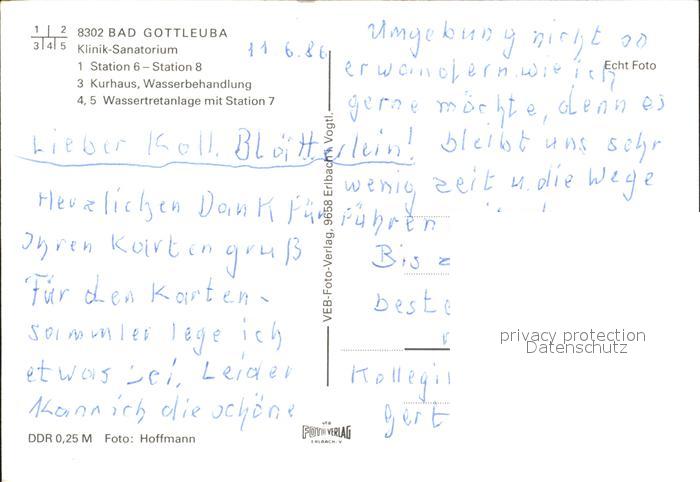 1 2
3 4 5
8302 BAD GOTTLEUBA
Klinik-Sanatorium
1 Station 6 – Station 8
3 Kurhaus, Wasserbehandlung
4, 5 Wassertretanlage mit Station 7
11 6.86
Lieber Koll. Blätterlein!
Herzlichen Dank für
Ihren Kartengruß
Für den Karten-
sammler lege ich
etwas bei. Leider
kann ich die schöne
Umgebung nicht so
Echt Foto
erwandern wie ich
gerne möchte, denn es
bleibt uns sehr
wenig zeit u. die Wege
führen
Bis z
beste
Kollegi
Gert
VEB-Foto-Verlag, 9658 Erlbach Vogtl.
privacy protection
Datenschutz
DDR 0,25 M Foto: Hoffmann
VEB
FOTO VERLAG
ERLBACH/V